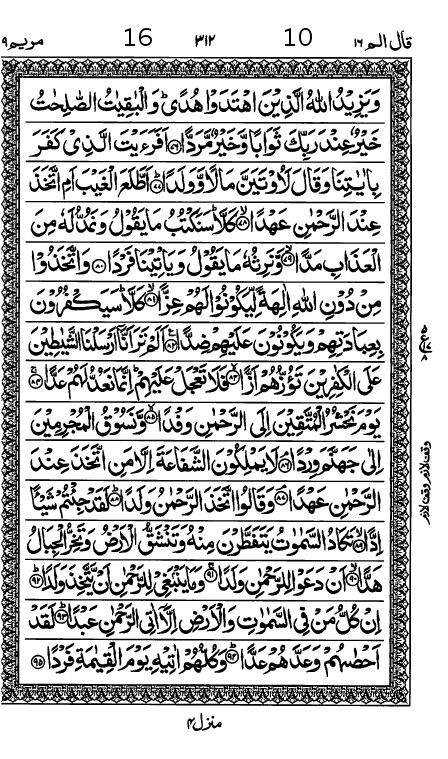 قال الم ١٦ 10 ٣١٢ 16 مريم ١٩
وَيَزِيْدُ اللّٰهُ الَّذِيْنَ اهْتَدَوْا هُدًى ؕ وَالْبٰقِيٰتُ الصّٰلِحٰتُ
خَيْرٌ عِنْدَ رَبِّكَ ثَوَابًا وَّخَيْرٌ مَّرَدًّا ۟﴿۷۶﴾ اَفَرَءَيْتَ الَّذِيْ كَفَرَ
بِاٰيٰتِنَا وَقَالَ لَاُوْتَيَنَّ مَالًا وَّوَلَدًا ﴿۷۷﴾ اَطَّلَعَ الْغَيْبَ اَمِ اتَّخَذَ
عِنْدَ الرَّحْمٰنِ عَهْدًا ﴿۷۸﴾ كَلَّا ؕ سَنَكْتُبُ مَا يَقُوْلُ وَنَمُدُّ لَهٗ مِنَ
الْعَذَابِ مَدًّا ﴿۷۹﴾ وَّنَرِثُهٗ مَا يَقُوْلُ وَيَاْتِيْنَا فَرْدًا ﴿۸۰﴾ وَاتَّخَذُوْا
مِنْ دُوْنِ اللّٰهِ اٰلِهَةً لِّيَكُوْنُوْا لَهُمْ عِزًّا ﴿۸۱﴾ كَلَّا ؕ سَيَكْفُرُوْنَ
بِعِبَادَتِهِمْ وَيَكُوْنُوْنَ عَلَيْهِمْ ضِدًّا ﴿۸۲﴾ اَلَمْ تَرَ اَنَّاۤ اَرْسَلْنَا الشَّيٰطِيْنَ
عَلَى الْكٰفِرِيْنَ تَؤُزُّهُمْ اَزًّا ﴿۸۳﴾ فَلَا تَعْجَلْ عَلَيْهِمْ ؕ اِنَّمَا نَعُدُّ لَهُمْ عَدًّا ﴿۸۴﴾
يَوْمَ نَحْشُرُ الْمُتَّقِيْنَ اِلَى الرَّحْمٰنِ وَفْدًا ﴿۸۵﴾ وَّنَسُوْقُ الْمُجْرِمِيْنَ
اِلٰى جَهَنَّمَ وِرْدًا ﴿۸۶﴾ لَا يَمْلِكُوْنَ الشَّفَاعَةَ اِلَّا مَنِ اتَّخَذَ عِنْدَ
الرَّحْمٰنِ عَهْدًا ﴿۸۷﴾ وَقَالُوا اتَّخَذَ الرَّحْمٰنُ وَلَدًا ﴿۸۸﴾ لَقَدْ جِئْتُمْ شَيْـًٔا
اِدًّا ﴿۸۹﴾ تَكَادُ السَّمٰوٰتُ يَتَفَطَّرْنَ مِنْهُ وَتَنْشَقُّ الْاَرْضُ وَتَخِرُّ الْجِبَالُ
هَدًّا ﴿۹۰﴾ اَنْ دَعَوْا لِلرَّحْمٰنِ وَلَدًا ﴿۹۱﴾ وَمَا يَنْۢبَغِيْ لِلرَّحْمٰنِ اَنْ يَّتَّخِذَ وَلَدًا ﴿۹۲﴾
اِنْ كُلُّ مَنْ فِي السَّمٰوٰتِ وَالْاَرْضِ اِلَّاۤ اٰتِي الرَّحْمٰنِ عَبْدًا ﴿۹۳﴾ لَقَدْ
اَحْصٰىهُمْ وَعَدَّهُمْ عَدًّا ﴿۹۴﴾ وَكُلُّهُمْ اٰتِيْهِ يَوْمَ الْقِيٰمَةِ فَرْدًا ﴿۹۵﴾
منزل ۴